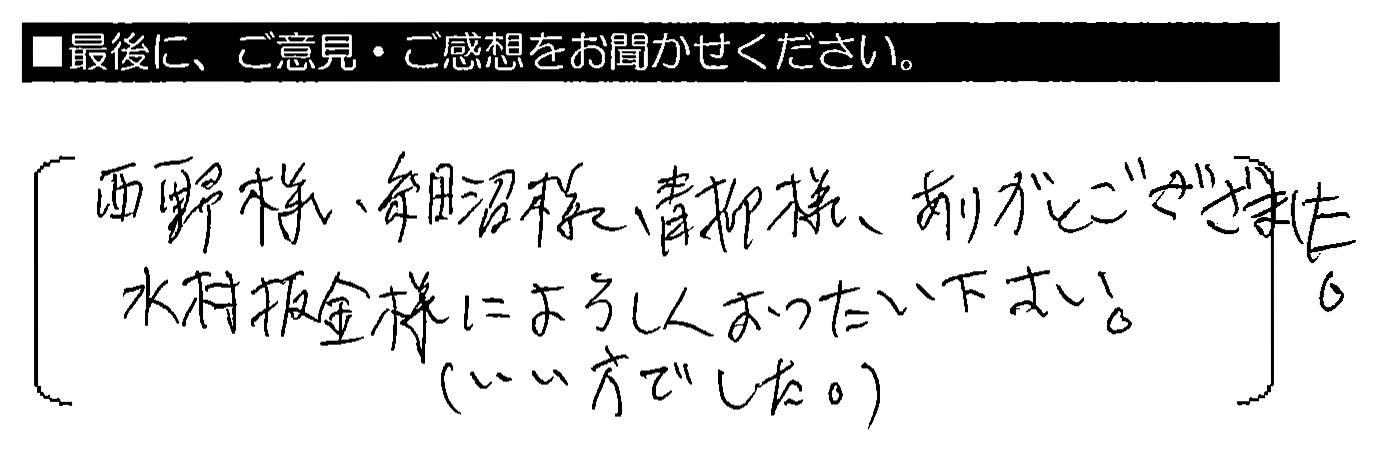 ■最後に、ご意見・ご感想をお聞かせください。
西野様、細沼様、青柳様、ありがとうございました。
水村板金様によろしくおつたい下さい。
(いい方でした。)